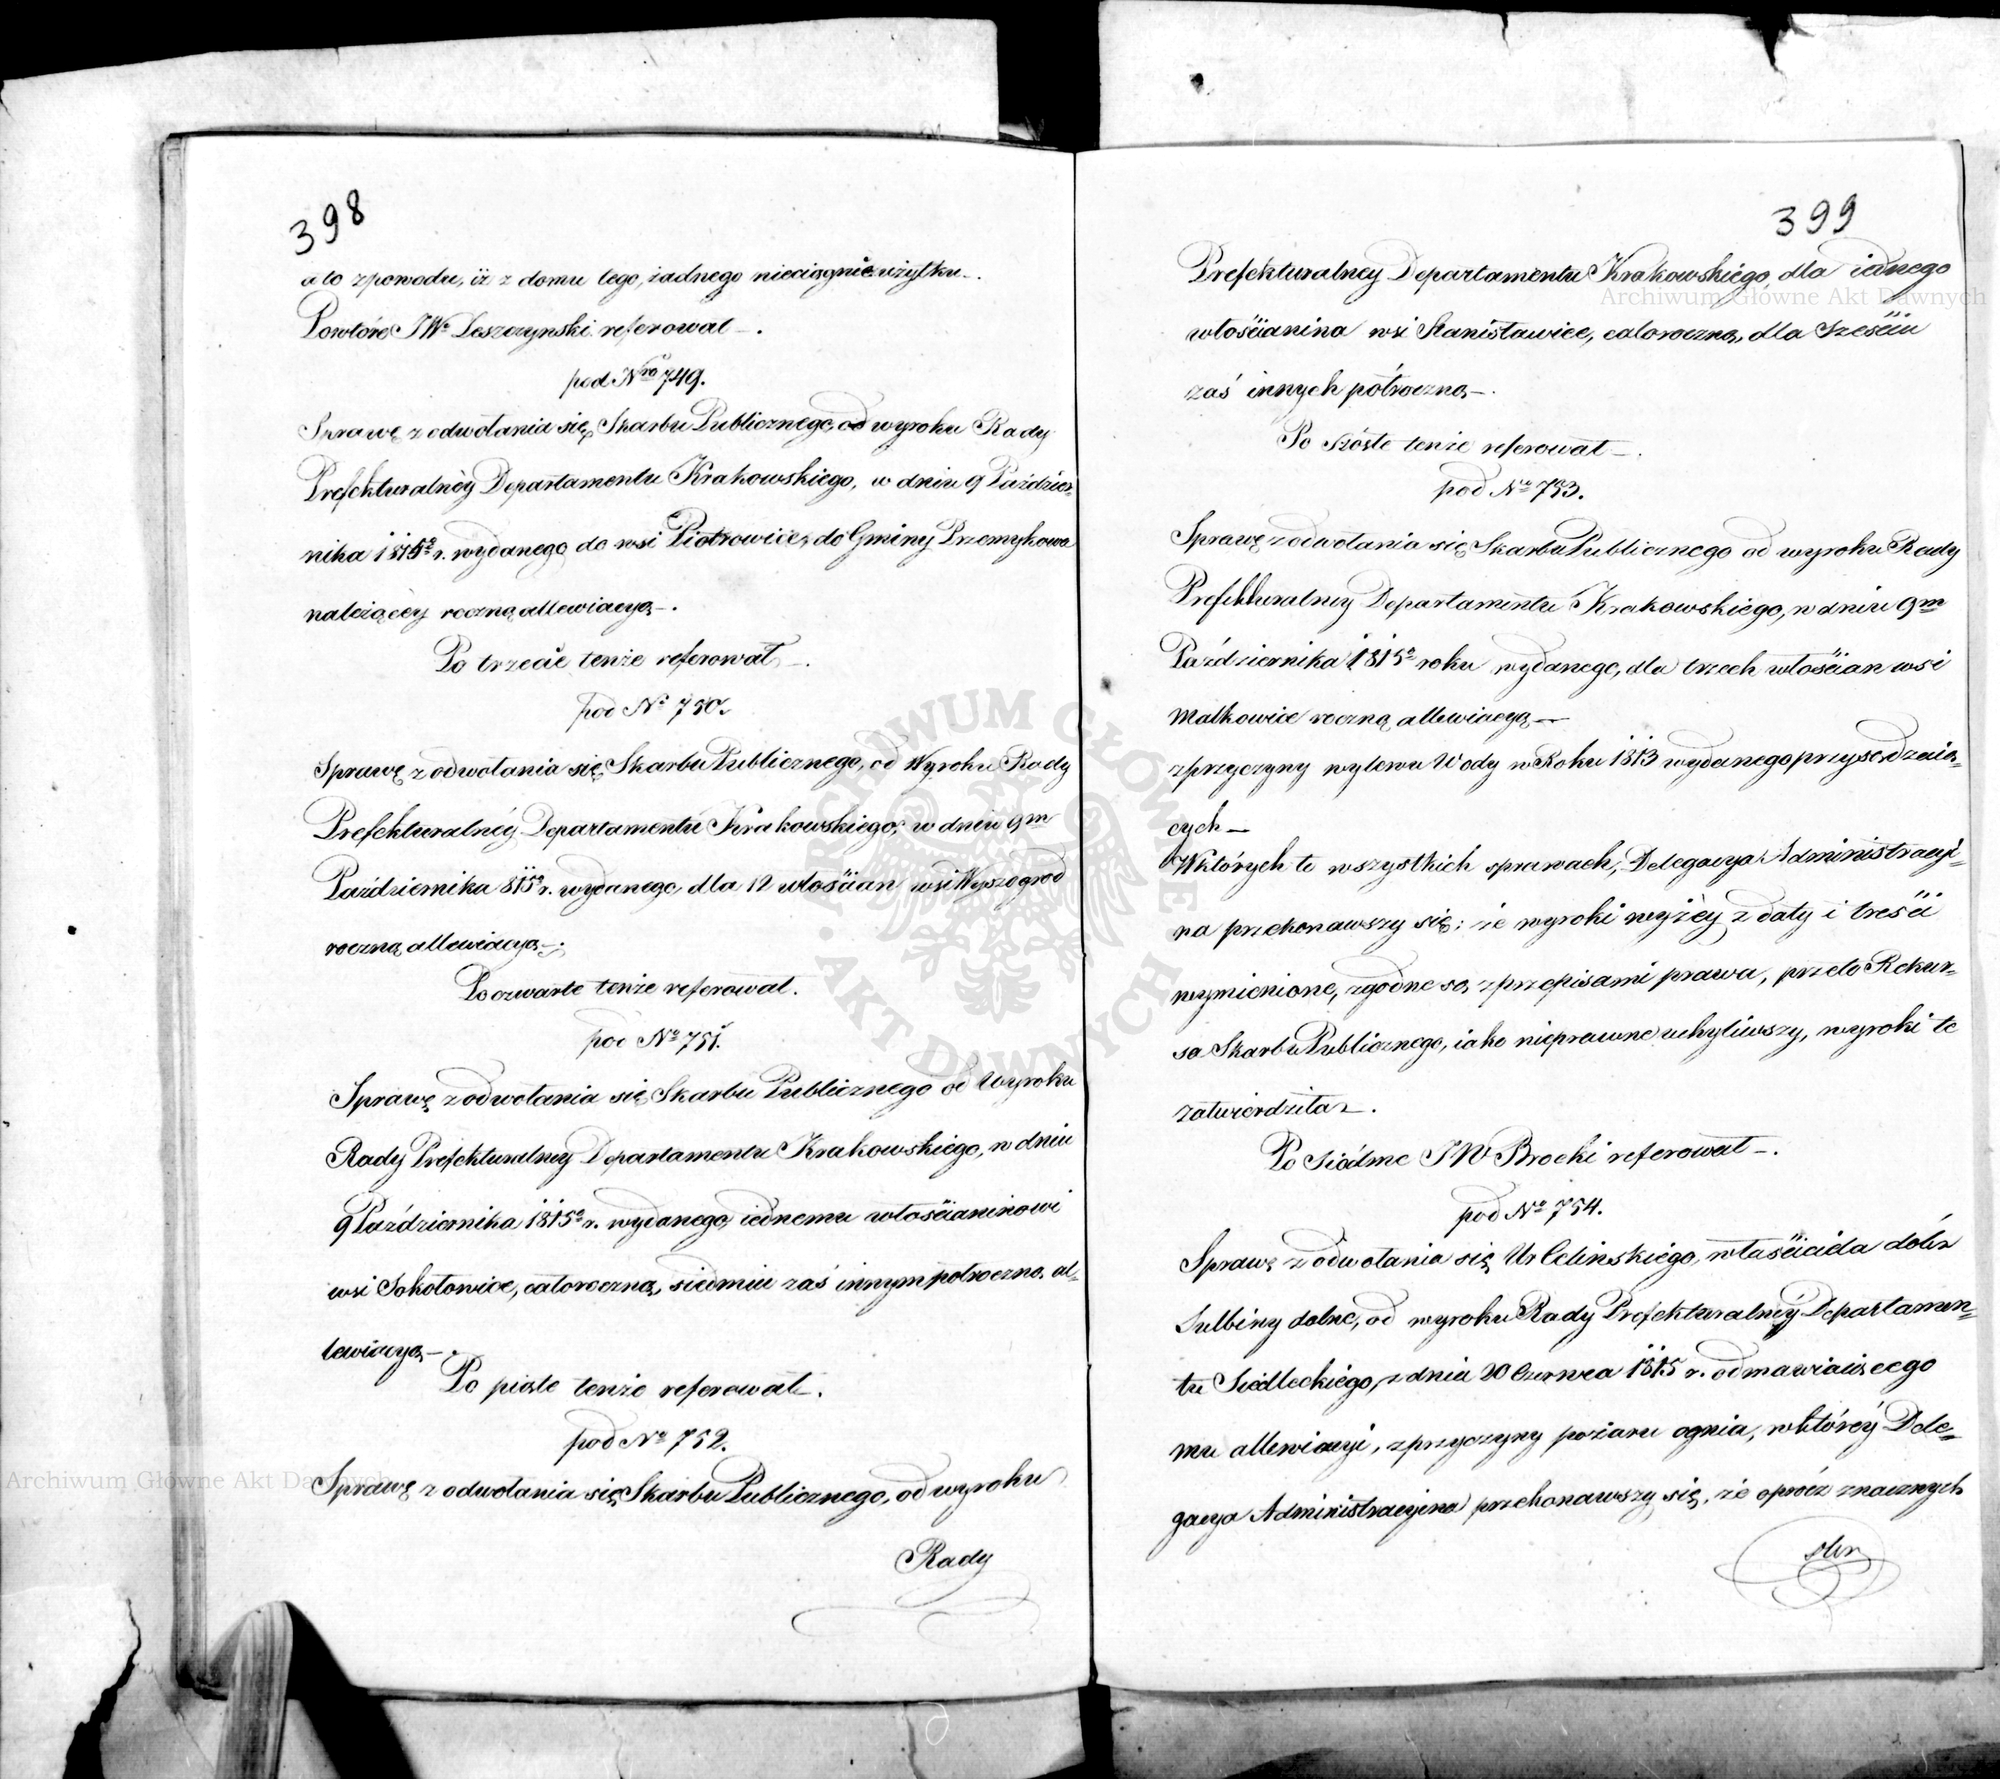 398
a to z powodu, iż z domu tego, żadnego nieciągnie użytku.
Powtóre JW Leszczynski referował.
pod Nro 749.
Sprawę z odwołania się Skarbu Publicznego, od wyroku Rady
Prefekturalnéy Departamentu Krakowskiego, w dniu 9 Paździer=
nika 1815º r. wydanego do wsi Piotrowice, do Gminy Przemykowa
należącéy roczną allewiacyą.
Po trzecie tenże referował
pod No 750.
Sprawę z odwołania się Skarbu Publicznego, od Wyroku Rady
Prefekturalnéy Departamentu Krakowskiego, w dniu 9m
Października 815º r. wydanego, dla 12 włościan wsi Wyszogrod
roczną allewiacyą.
Po czwarte tenże referował.
pod No 751.
Sprawę z odwołania się Skarbu Publicznego od Wyroku
Rady Prefekturalney Departamentu Krakowskiego, w dniu
9 Października 1815º r. wydanego, iednemu włościaninowi
wsi Sokołowice, całoroczną, siedmiu zaś innym połroczną al=
lewiacyą.
Po piąte tenże referował.
pod No 752.
Sprawę z odwołania się Skarbu Publicznego, od wyroku
Rady
399
Prefekturalney Departamentu Krakowskiego, dla iednego
włościanina wsi Stanisławice, całoroczną, dla Sześciu
zaś innych półroczną.
Po szóste tenże referował.
pod No 753.
Sprawę z odwołania się Skarbu Publicznego od wyroku Rady
Prefekturalney Departamentu Krakowskiego, w dniu 9m
Października 1815º roku wydanego, dla trzech włościan wsi
Małkowice roczną allewiacyą
z przyczyny wylewu Wody w Roku 1813 wydanego przysądzaią=
cych
W których to wszystkich sprawach, Delegacya Administracyi=
na przekonawszy się: że wyroki wyżéy z daty i treści
wymienione, zgodne są z przepisami prawa, przeto Rekur=
sa Skarbu Publicznego, iako nieprawne uchyliwszy, wyroki te
zatwierdziła.
Po Siódme JW Brocki referował.
pod No 754.
Sprawę z odwołania się Ur Celinskiego, właściciela dóbr
Sulbiny dolne, od wyroku Rady Prefekturalnéy Departamen=
tu Siedleckiego, z dnia 20 Czerwca 1815 r. odmawiaiącego
mu allewiacyi, z przyczyny pożaru ognia, w któréy Dele=
gacya Administracyina przekonawszy się, że oprócz znacznych
Archiwum Główne Akt Dawnych
Archiwum Główne Akt Dawnych
ARCHIWUM GŁÓWNE AKT DAWNYCH